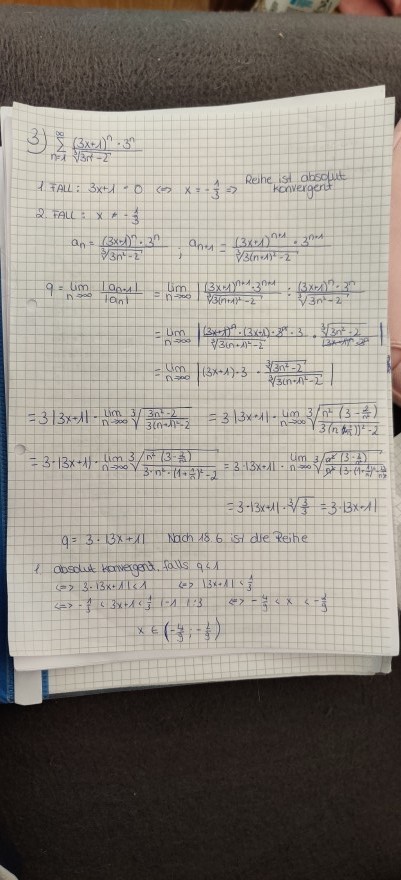 3) ∞∑n=1 (3x+1)^n · 3^n / ∛(3n²-2)
1. FALL: 3x+1 = 0 ⇔ x = -1/3 ⇒ Reihe ist absolut konvergent
2. FALL: x ≠ -1/3
a_n = (3x+1)^n · 3^n / ∛(3n²-2) ; a_{n+1} = (3x+1)^{n+1} · 3^{n+1} / ∛(3(n+1)²-2)
q = lim n→∞ |a_{n+1}| / |a_n| = lim n→∞ | (3x+1)^{n+1} · 3^{n+1} / ∛(3(n+1)²-2) : (3x+1)^n · 3^n / ∛(3n²-2) |
= lim n→∞ | (3x+1)^n · (3x+1) · 3^n · 3 / ∛(3(n+1)²-2) · ∛(3n²-2) / (3x+1)^n · 3^n |
= lim n→∞ | (3x+1) · 3 · ∛(3n²-2) / ∛(3(n+1)²-2) |
= 3 |3x+1| · lim n→∞ ∛((3n²-2) / (3(n+1)²-2)) = 3 |3x+1| · lim n→∞ ∛(n² (3-2/n²) / 3(n
= 3 · |3x+1| · lim n→∞ ∛(n² (3-2/n²) / (3·n²·(1+1/n)²-2)) = 3 · |3x+1| · lim n→∞ ∛(n² (3-2/n²) / n² (3·(1+1/n)²-2/n²))
= 3 · |3x+1| · ∛(3/3) = 3 · |3x+1|
q = 3 · |3x+1| Nach 18.6 ist die Reihe
1. absolut konvergent, falls q < 1
⇔ 3 · |3x+1| < 1 ⇔ |3x+1| < 1/3
⇔ -1/3 < 3x+1 < 1/3 |-1 |:3 ⇔ -4/9 < x < -2/9
x ∈ (-4/9 ; -2/9)